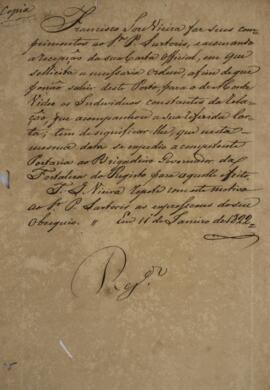 Copia
Francisco José Vieira faz seus com-
primentos ao Snr. P. Sartoris, accusando
a recepção da sua Carta Official, em que
solicita a necessaria Ordem, afim de que
possão sahir deste Porto, para o de Monte
Video os Individuos constantes da Rela-
ção, que acompanhou a sua referida Car-
ta; tem de significar-lhe, que nesta
mesma data se expedio a competente
Portaria ao Brigadeiro Governador da
Fortaleza do Registo para aquelle effeito.
F. J. Vieira repete com este motivo
ao Sr. P. Sartoris as expressoens do seu
Obsequio. " Em 11 de Janeiro de 1822